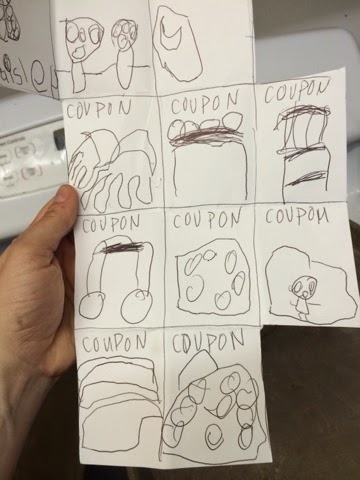 COUPON COUPON COUPON
COUPON COUPON COUPON
COUPON COUPON